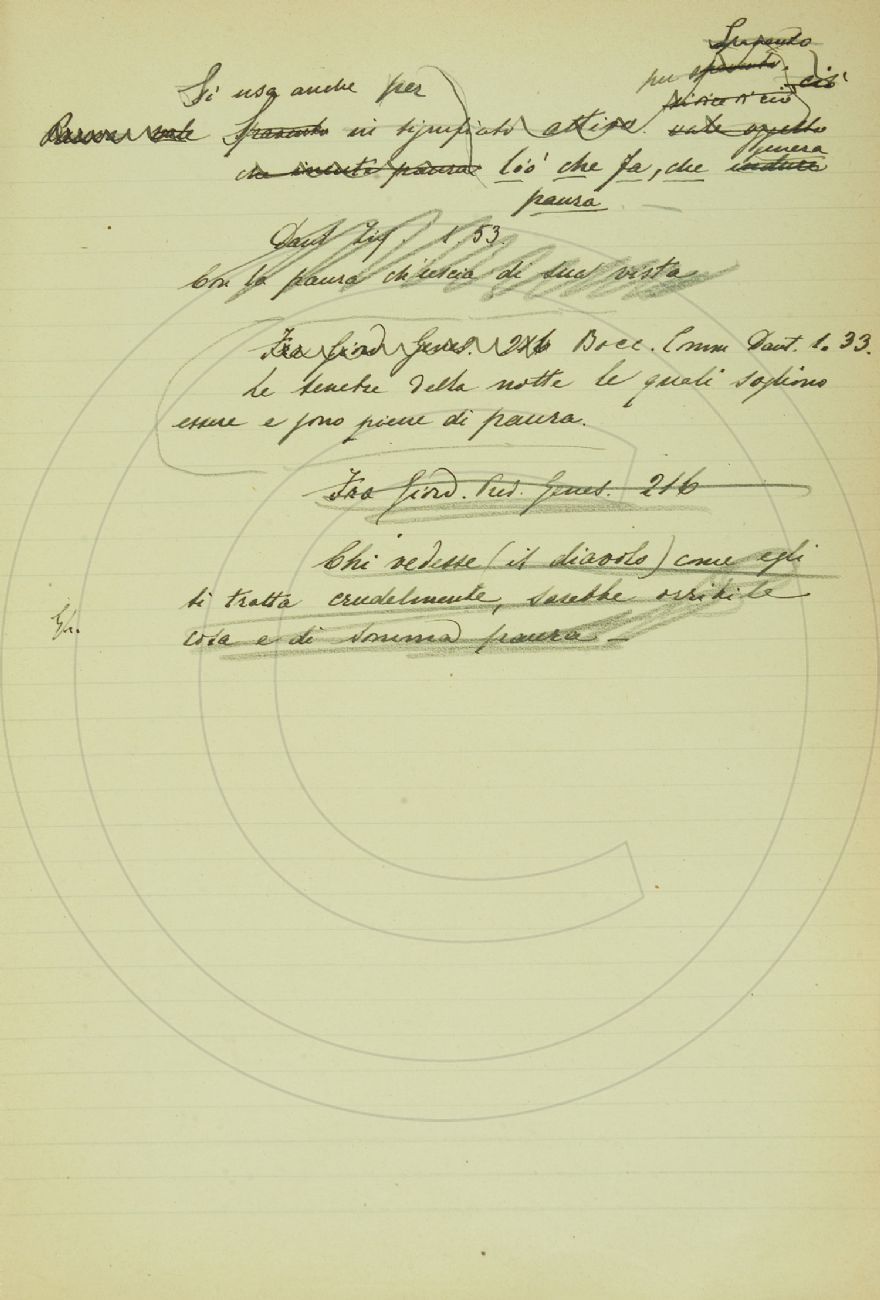 Spavento
Si usa anche per
per spavento. ciò
si dice di ciò
Paura vale Spavento in significato attivo. vale quello
genera
che incute paura Ciò che fa, che incute
paura
Dant. Inf. 1. 53.
Con la paura ch'uscia di sua vista
Fra Giord. Genes. 216 Bocc. Comm. Dant. 1. 33.
le tenebre della notte le quali sogliono
essere e sono piene di paura.
Fra Giord. Pred. Genes. 216
Chi vedesse (il diavolo) come egli
si tratta crudelmente, sarebbe orribile
cosa e di somma paura